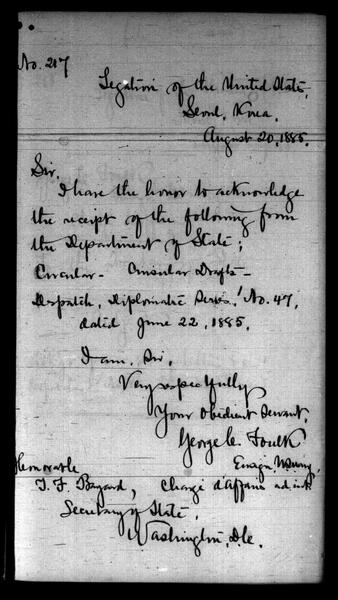 No. 217
Legation of the United States,
Seoul, Korea,
August 20, 1885.
Sir,
I have the honor to acknowledge
the receipt of the following from
the Department of State;
Circular - Consular Drafts -
Despatch, Diplomatic Series, No. 47,
dated June 22, 1885.
I am, Sir,
Very respectfully
Your Obedient Servant,
George C. Foulk
Ensign U.S. Navy,
Honorable
T. F. Bayard, Chargé d'Affaires ad int
Secretary of State,
Washington, D.C.